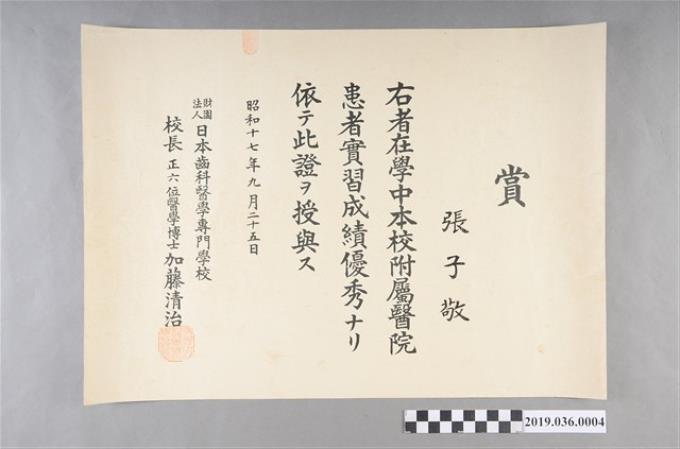 賞
張子敬
右者在學中本校附屬醫院
患者實習成績優秀ナリ
依テ此證ヲ授與ス
昭和十七年九月二十五日
財團法人日本齒科醫學專門學校
校長正六位醫學博士加藤清治
2019.036.0004